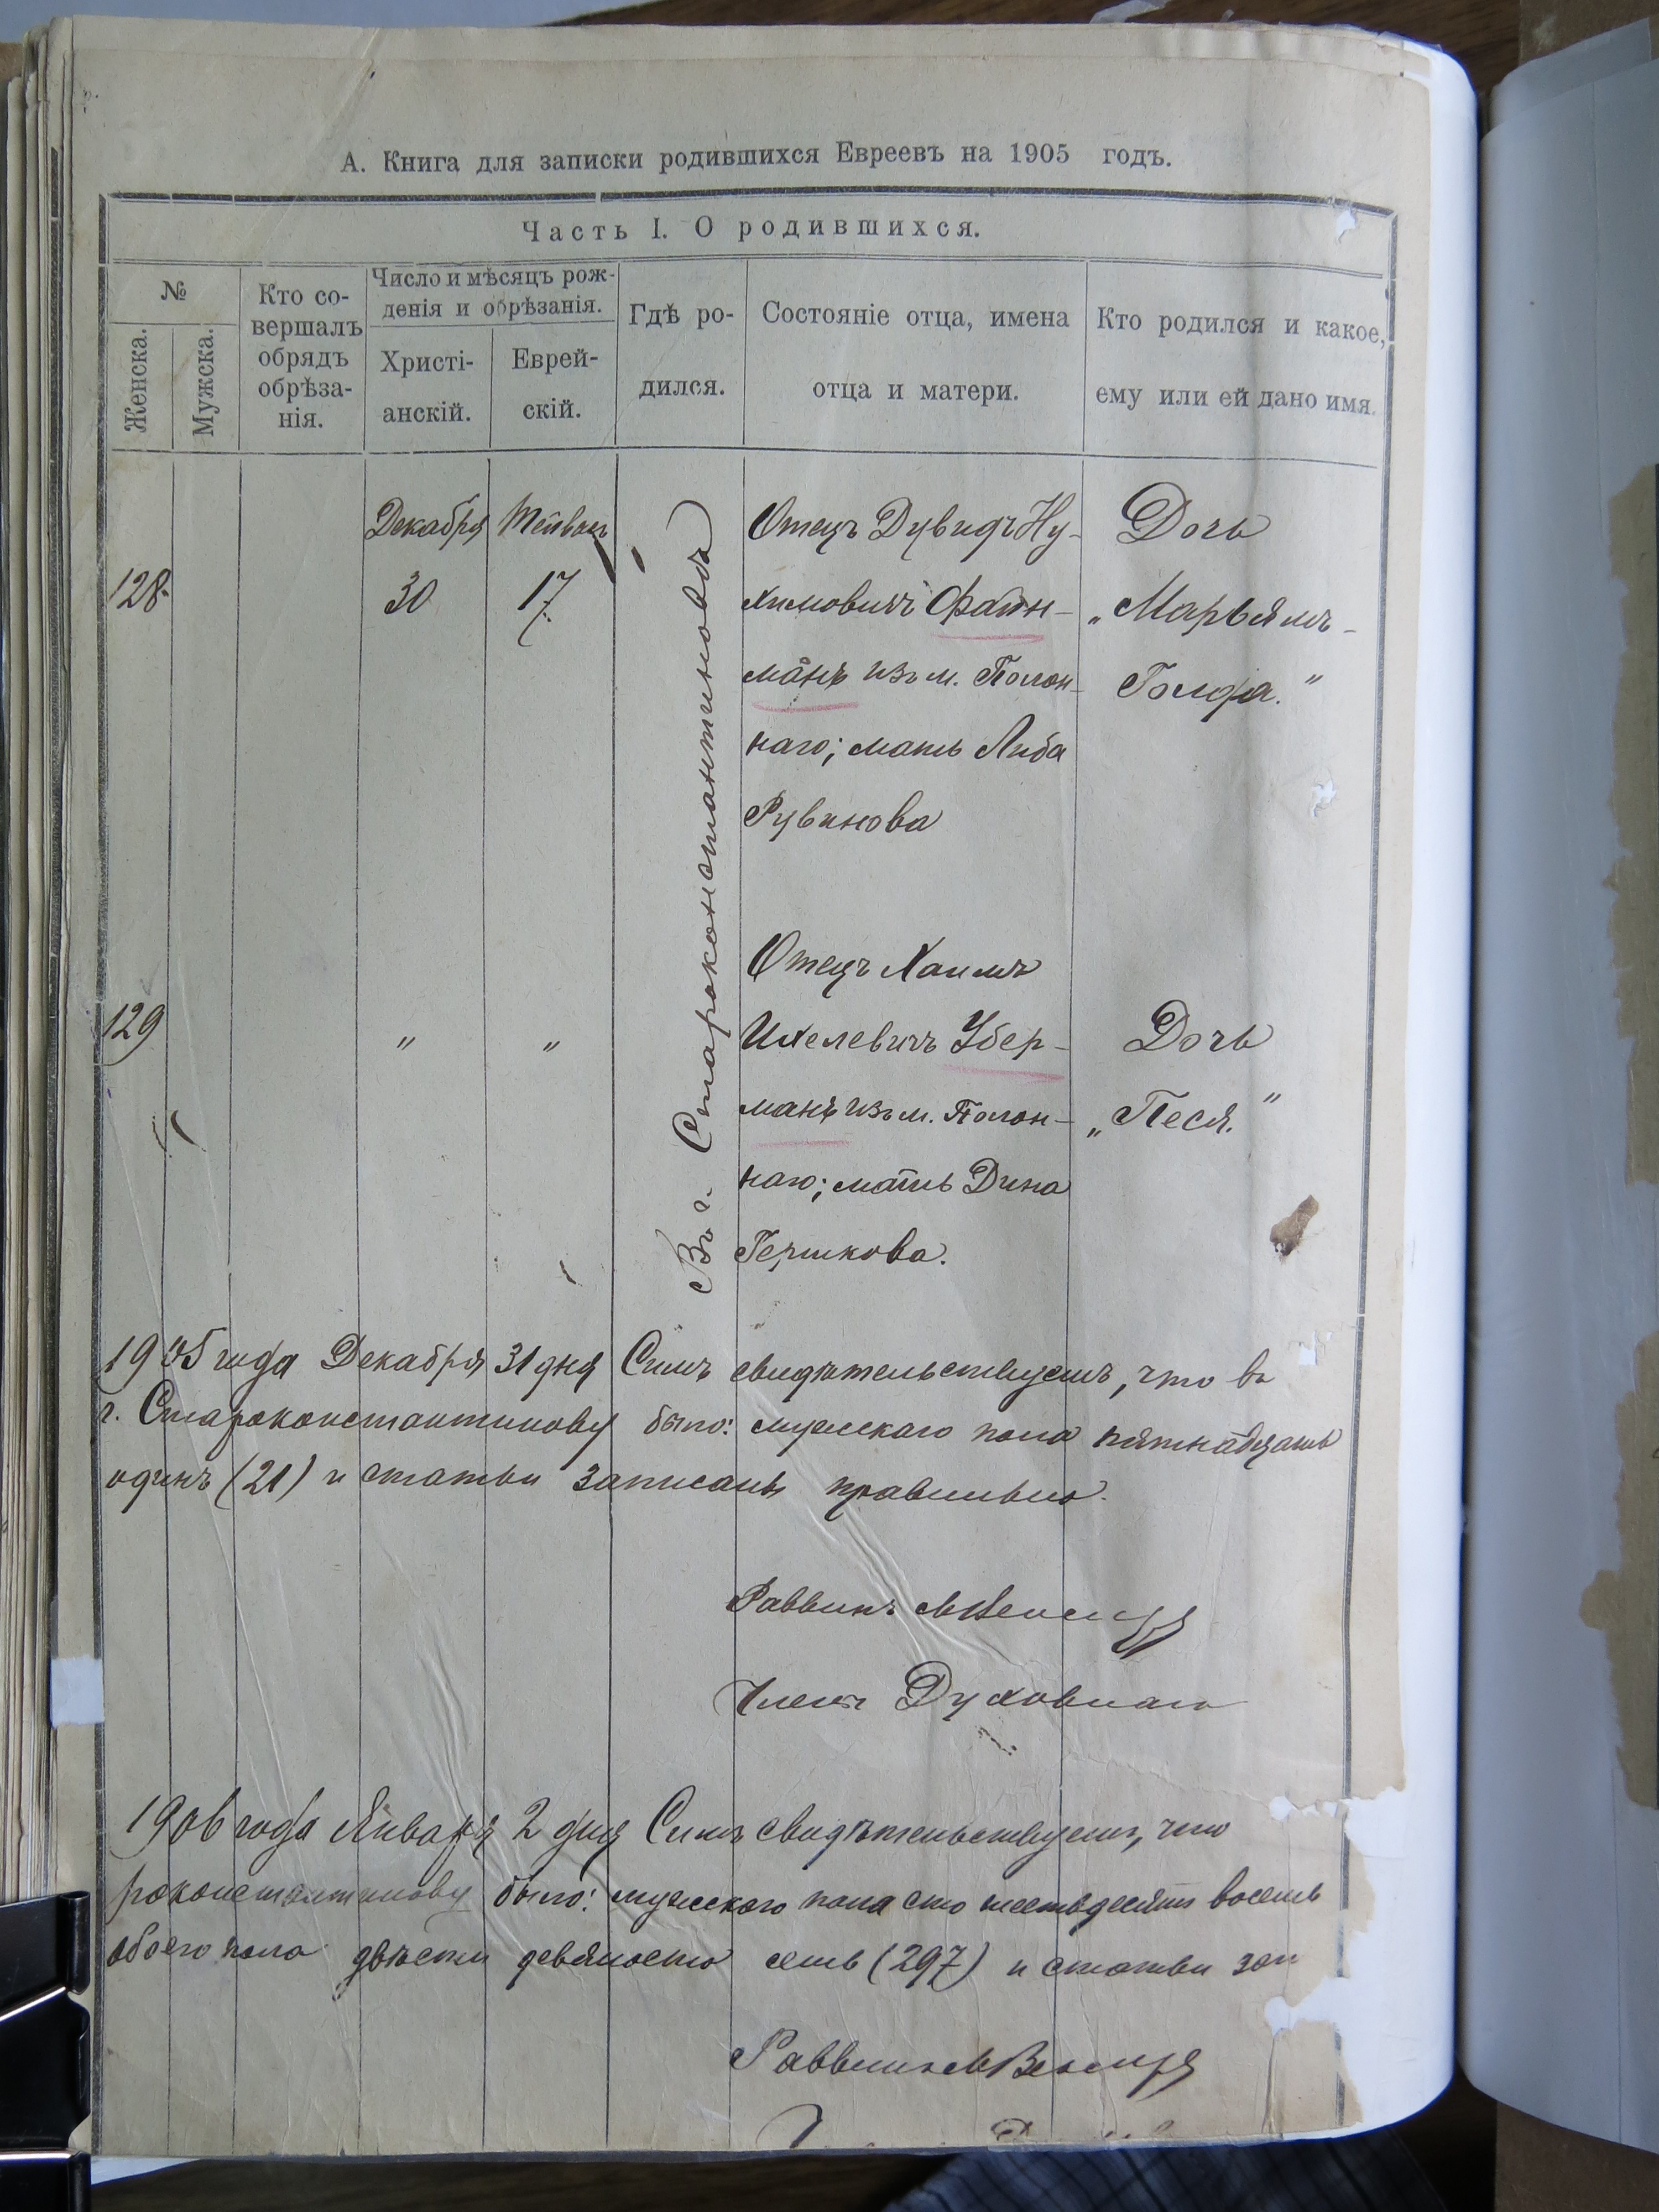 А. Книга для записки родившихся Евреевъ на 1905 годъ.
Часть I. О родившихся.
№
Женска.
Мужска.
Кто со-
вершалъ
обрядъ
обрѣза-
нія.
Число и мѣсяцъ рож-
денія и обрѣзанія.
Христі-
анскій.
Еврей-
скій.
Гдѣ ро-
дился.
Состояніе отца, имена
отца и матери.
Кто родился и какое,
ему или ей дано имя.
128.
Декабря
30
Тейвеи
17
Въ г. Староконстантиновѣ
Отецъ Дувидъ Ну-
химовичъ Файн-
манъ изъ м. Полон-
наго; мать Либа
Рувинова
Дочь
„Марьямъ-
Голда."
129
"
"
Отецъ Хаимъ
Ихелевичъ Убер-
манъ изъ м. Полон-
наго; мать Дина
Гершкова.
Дочь
„Песя."
1905 года Декабря 31 дня Симъ свидѣтельствуемъ, что въ
г. Староконстантинову было: мужскаго пола пятнадцать
одинъ (21) и статьи записаны правильно.
Раввинъ
Членъ Духовнаго
1906 года Января 2 дня Симъ свидѣтельствуемъ, что
роконстантинову было: мужскаго пола сто шестьдесятъ восемь
обоего пола двѣсти девяносто семь (297) и статьи зап
Раввинъ